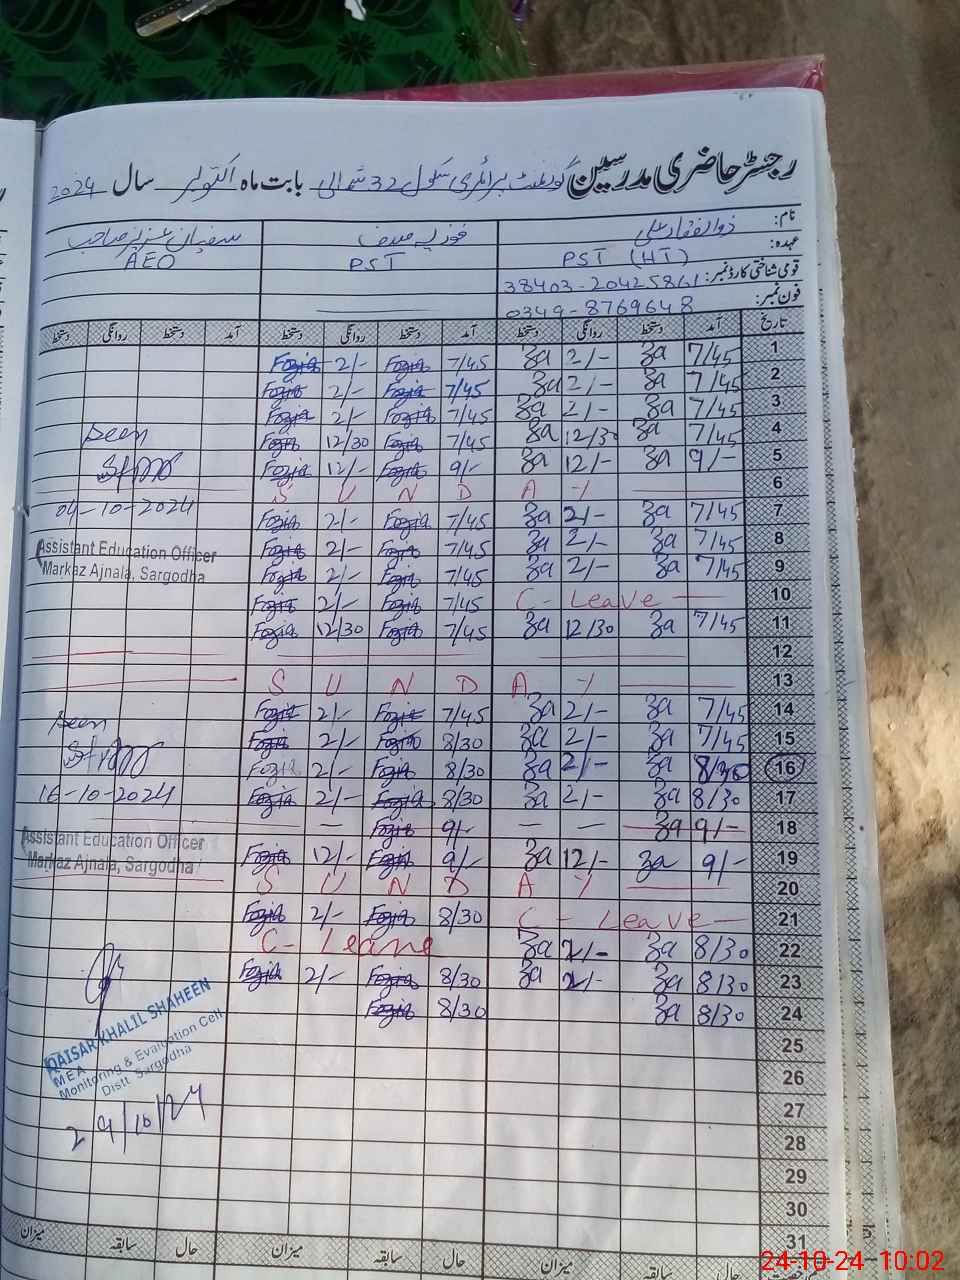 رجسٹر حاضری مدرسین گورنمنٹ پرائمری سکول 32 شمالی بابت ماہ اکتوبر سال 2024
نام: ذوالفقار علی فوزیہ صدف سفیان عزیز صاحب
عہدہ: PST (HT) PST AEO
قومی شناختی کارڈ نمبر: 38403-20425861
فون نمبر: 0349-8769648
تاریخ آمد دستخط روانگی دستخط آمد دستخط روانگی دستخط آمد دستخط روانگی دستخط
1 7/45 za 2/- za 7/45 Fozia 2/- Fozia
2 7/45 za 2/- za 7/45 Fozia 2/- Fozia
3 7/45 za 2/- za 7/45 Fozia 2/- Fozia
4 7/45 za 12/30 za 7/45 Fozia 12/30 Fozia Seen
5 9/- za 12/- za 9/- Fozia 12/- Fozia
6 S U N D A Y
04-10-2024
7 7/45 za 2/- za 7/45 Fozia 2/- Fozia
8 7/45 za 2/- za 7/45 Fozia 2/- Fozia
Assistant Education Officer
Markaz Ajnala, Sargodha
9 7/45 za 2/- za 7/45 Fozia 2/- Fozia
10 C - Leave 7/45 Fozia 2/- Fozia
11 7/45 za 12/30 za 7/45 Fozia 12/30 Fozia
12
13 S U N D A Y
14 7/45 za 2/- za 7/45 Fozia 2/- Fozia
Seen
15 7/45 za 2/- za 8/30 Fozia 2/- Fozia
16 8/30 za 2/- za 8/30 Fozia 2/- Fozia
16-10-2024
17 8/30 za 2/- za 8/30 Fozia 2/- Fozia
18 9/- za - - 9/- Fozia - -
Assistant Education Officer
Markaz Ajnala, Sargodha
19 9/- za 12/- za 9/- Fozia 12/- Fozia
20 S U N D A Y
21 C - Leave 8/30 Fozia 2/- Fozia
22 8/30 za 2/- za C - Leave
23 8/30 za 2/- za 8/30 Fozia 2/- Fozia
24 8/30 za 8/30 Fozia
QAISAR KHALIL SHAHEEN
MEA
Monitoring & Evaluation Cell
Distt. Sargodha
24/10/24
25
26
27
28
29
30
31
حال سابقہ میزان حال سابقہ میزان حال سابقہ میزان
24-10-24 10:02